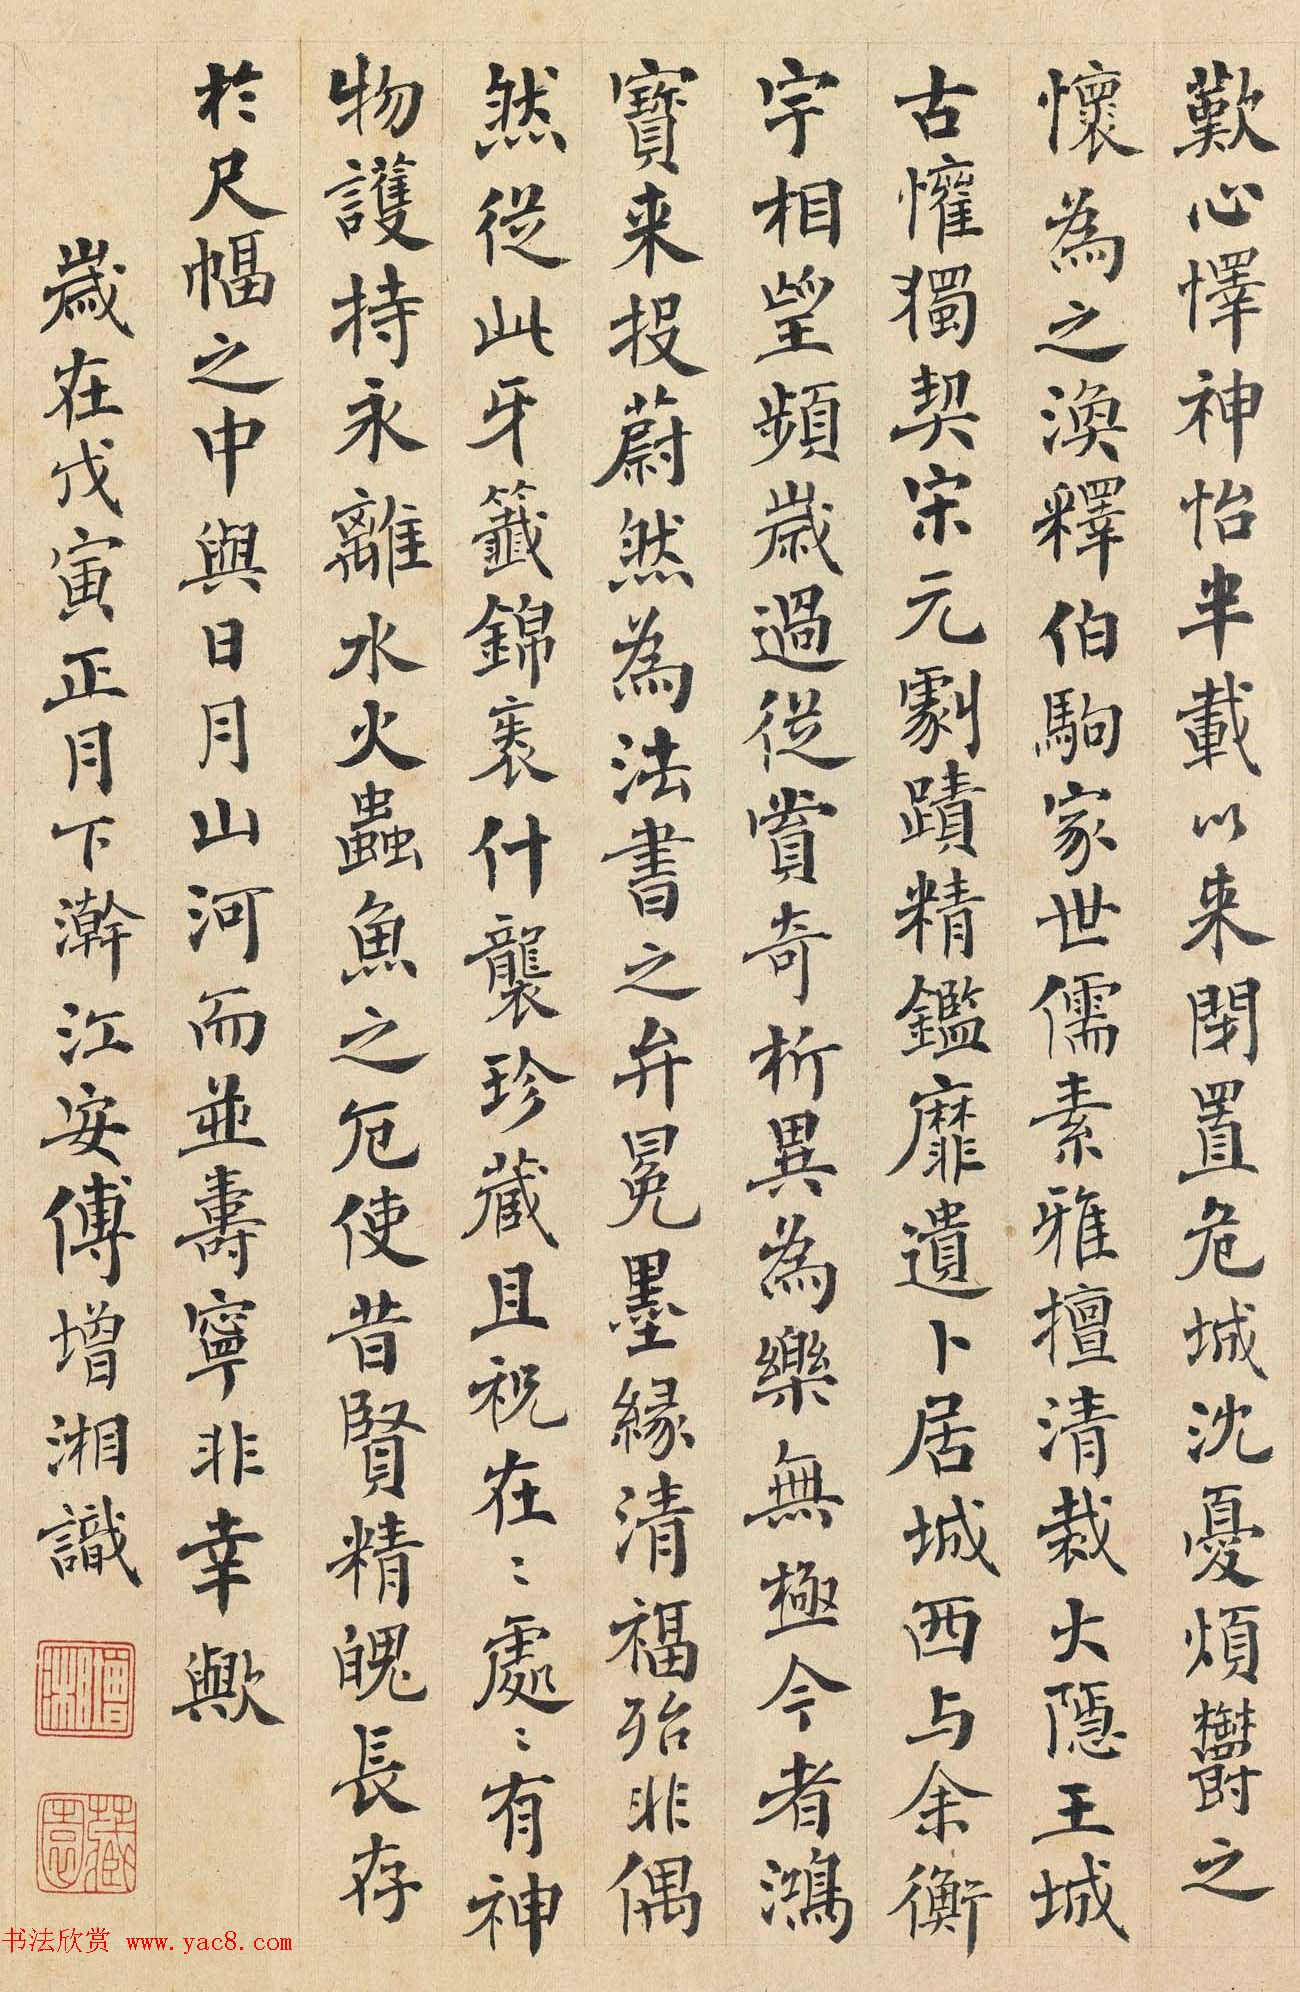 歎心懌神怡半載以来閉置危城沈憂煩欝之
懷為之渙釋伯駒家世儒素雅擅清裁大隱王城
古懽獨契宋元劇蹟精鑑靡遺卜居城西与余衡
宇相望頻歲過從賞奇析異為樂無極今者鴻
寶来投蔚然為法書之弁冕墨緣清福殆非偶
然從此牙籤錦裹什襲珍藏且祝在〻處〻有神
物護持永離水火蟲魚之厄使昔賢精魄長存
於尺幅之中與日月山河而並壽寧非幸歟
歲在戊寅正月下澣江安傅增湘識
增湘
藏園
书法欣赏 www.yac8.com